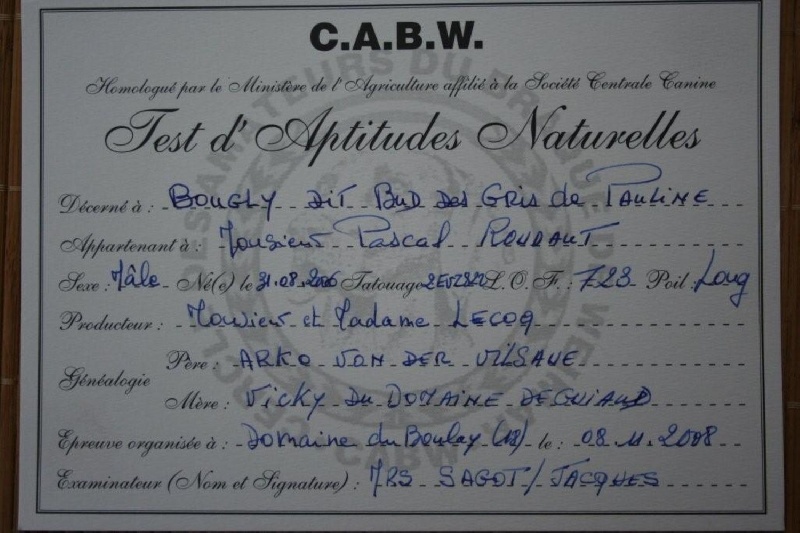 C.A.B.W.
Homologué par le Ministère de l'Agriculture affilié à la Société Centrale Canine
Test d'Aptitudes Naturelles
Décerné à : BOUGLY DIT BUD des GRIS de PAULINE
Appartenant à : Monsieur Pascal ROUDAUT
Sexe : Mâle Né(e) le 31.08.2006 Tatouage L.O.F. : 723 Poil : Long
Producteur : Monsieur et Madame LECOQ
Généalogie
Père : ARKO VON DER VILSAUE
Mère : VICKY DU DOMAINE DEGUIAUD
Epreuve organisée à : Domaine du Boulay (18) le : 08.11.2008
Examinateur (Nom et Signature) : MRS SAGOT / JACQUES